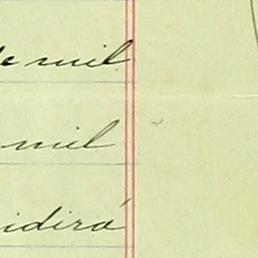 de mil
mil
idirá